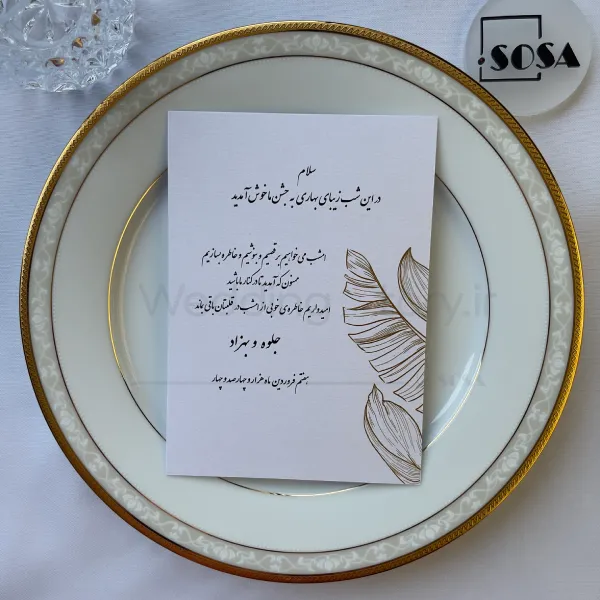 .SOSA
سلام
در این شب زیبای بهاری به جشن ما خوش آمدید
امشب می خواهیم برقصیم و بنوشیم و خاطره بسازیم
ممنون که آمدید تا در کنار ما باشید
امیدواریم خاطره ی خوبی از امشب در قلبتان باقی بماند
جلوه و بهزاد
هفتم فروردین ماه هزار و چهارصد و چهار